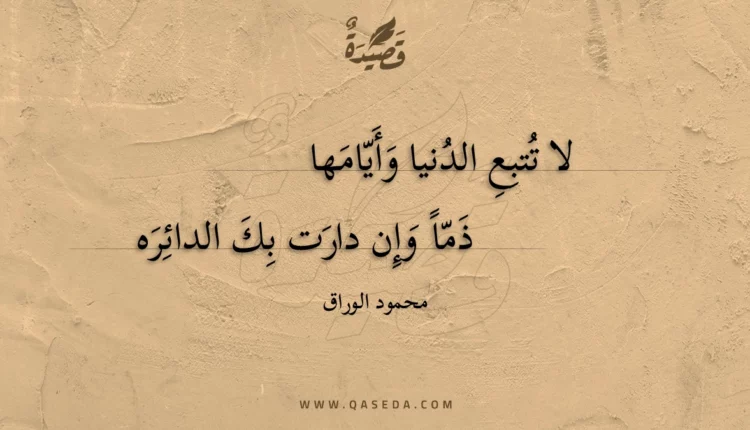 قَصِيدَةٌ
لا تُتبعِ الدُنيا وَأَيّامَها
ذَمّاً وَإِن دارَت بِكَ الدائِرَه
محمود الوراق
WWW.QASEDA.COM